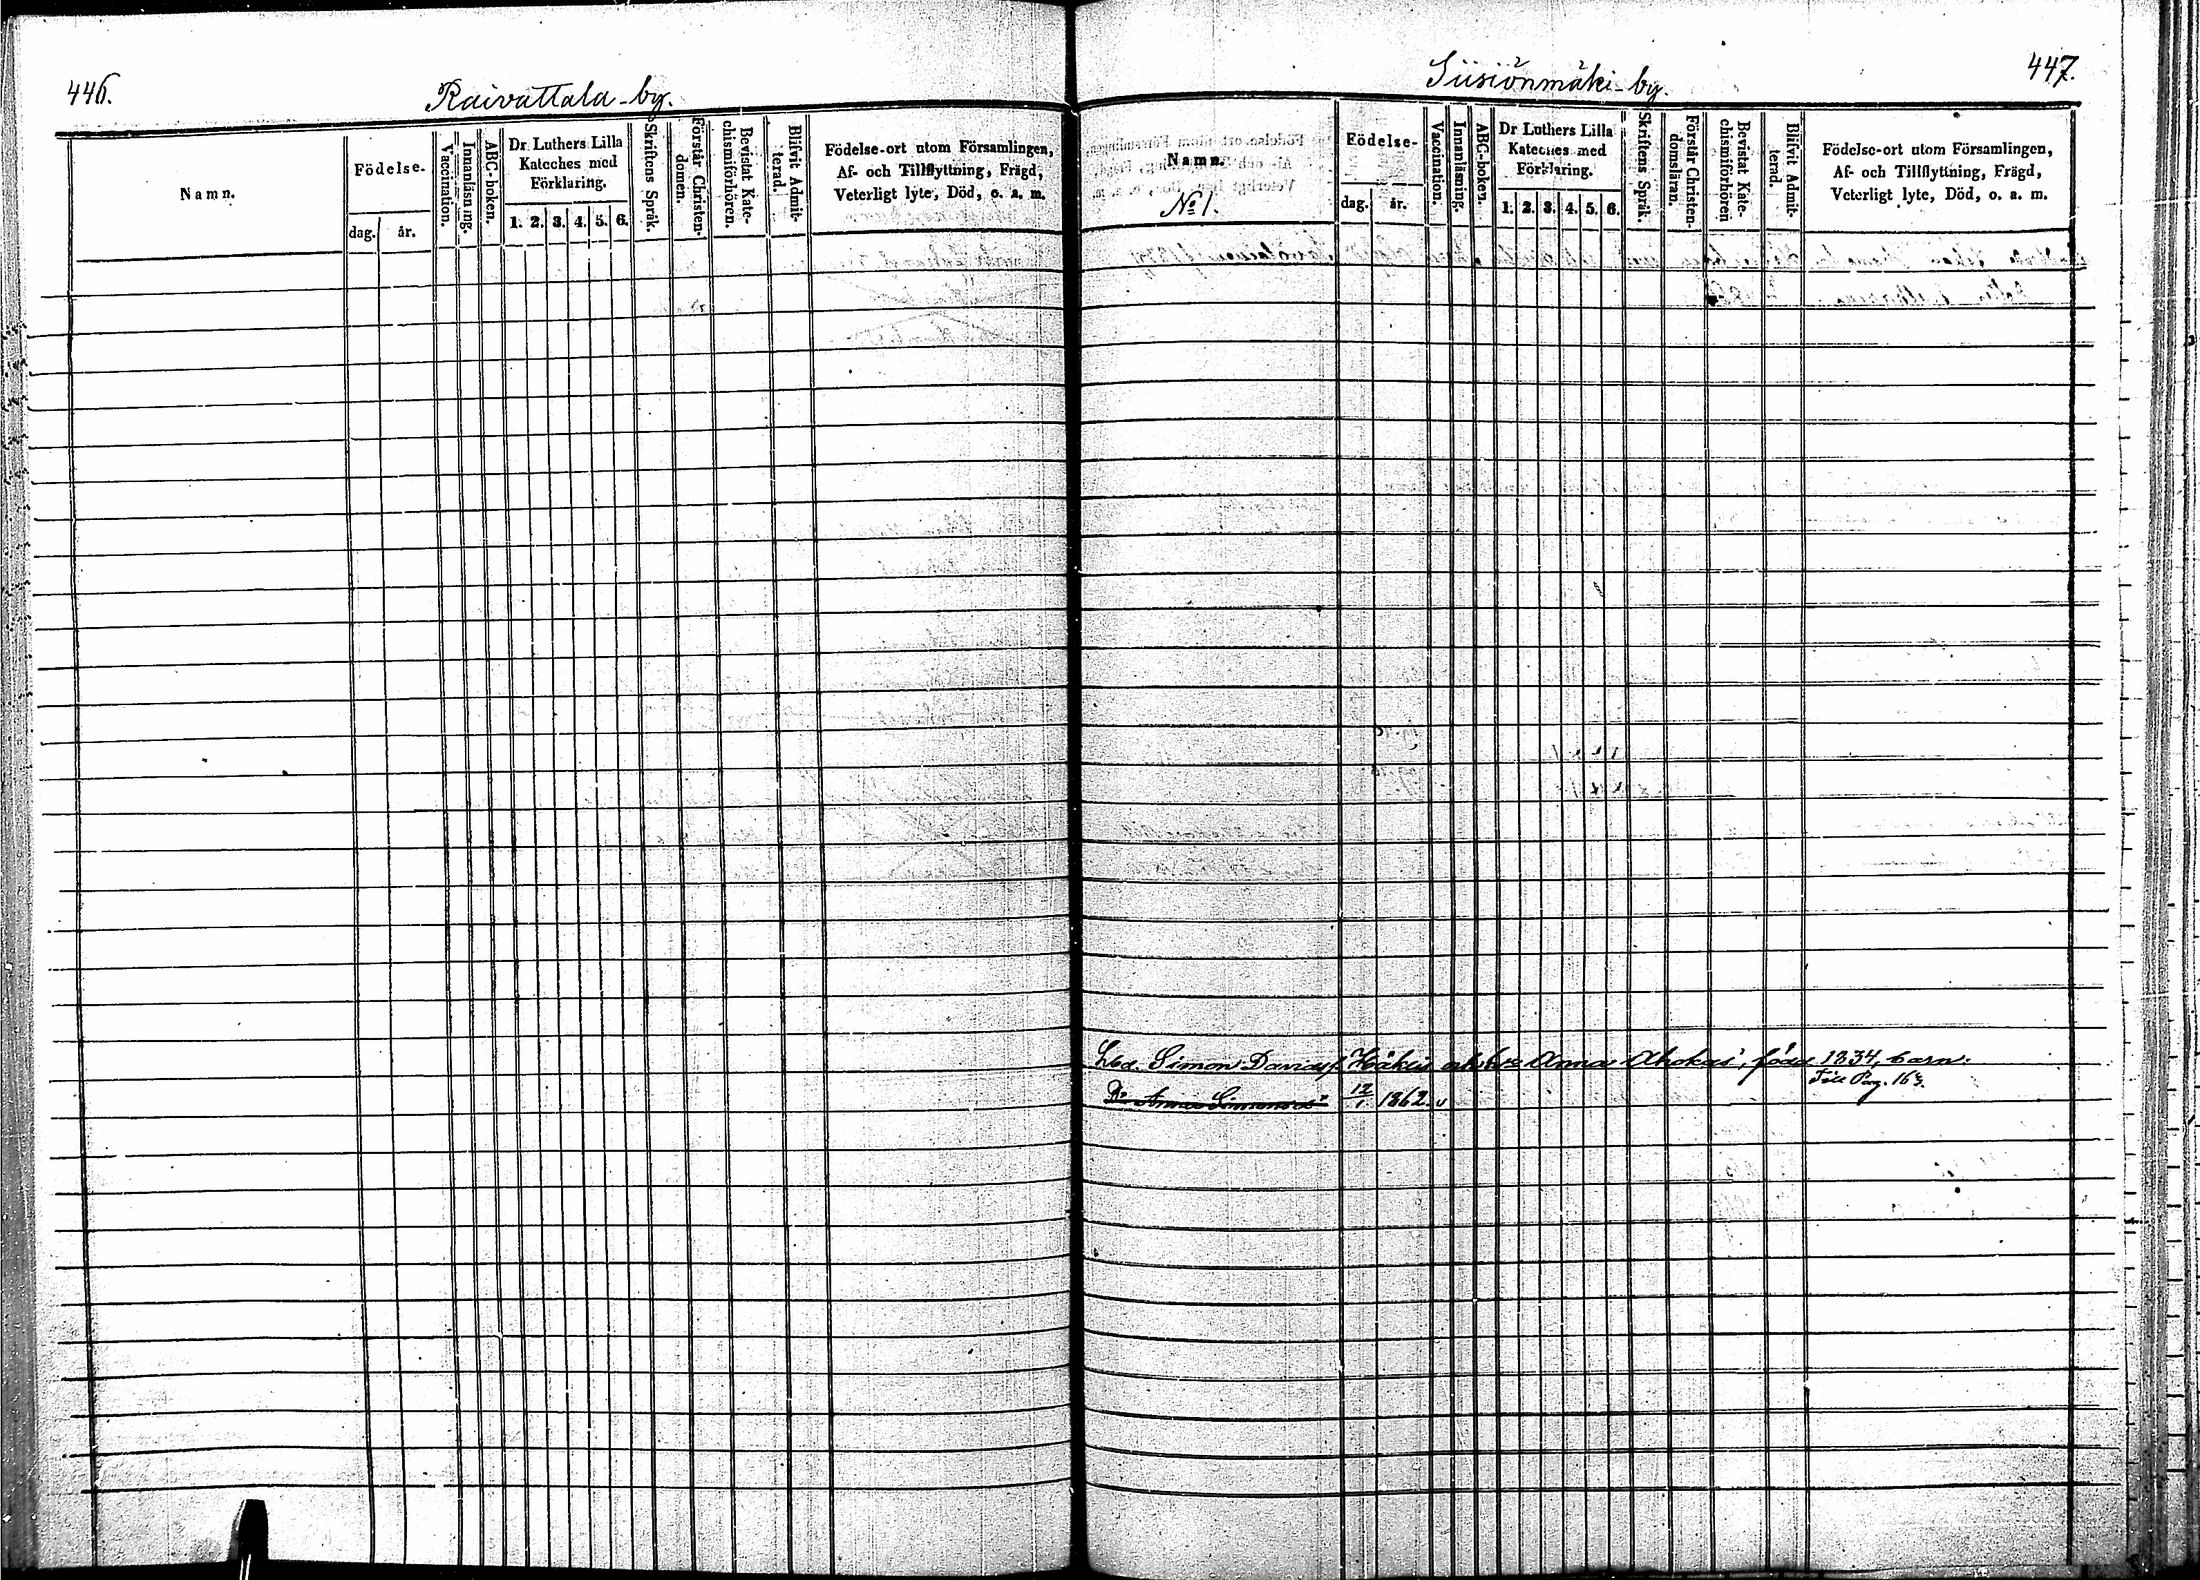 446.
Raivattala-by.
Namn.
Födelse.
dag.
år.
Vaccination.
Innanläsning.
ABC-boken.
Dr Luthers Lilla
Kateches med
Förklaring.
1. 2. 3. 4. 5. 6.
Skriftens Språk.
Förstår Christen-
domen.
Bevistat Kate-
chismiförhören.
Blifvit Admit-
terad.
Födelse-ort utom Församlingen,
Af- och Tillflyttning, Frägd,
Veterligt lyte, Död, o. a. m.
447.
Siisiönmäki-by.
Namn.
No 1.
Födelse-
dag.
år.
Vaccination.
Innanläsning.
ABC-boken.
Dr Luthers Lilla
Kateches med
Förklaring.
1. 2. 3. 4. 5. 6.
Skriftens Språk.
Förstår Christen-
domsläran.
Bevistat Kate-
chismiförhören
Blifvit Admit-
terad.
Födelse-ort utom Församlingen,
Af- och Tillflyttning, Frägd,
Veterligt lyte, Död, o. a. m.
Simon Davidss. Anna Ahokas, född 1834, barn:
Anna 12/1 1862. v Till Pag. 163.